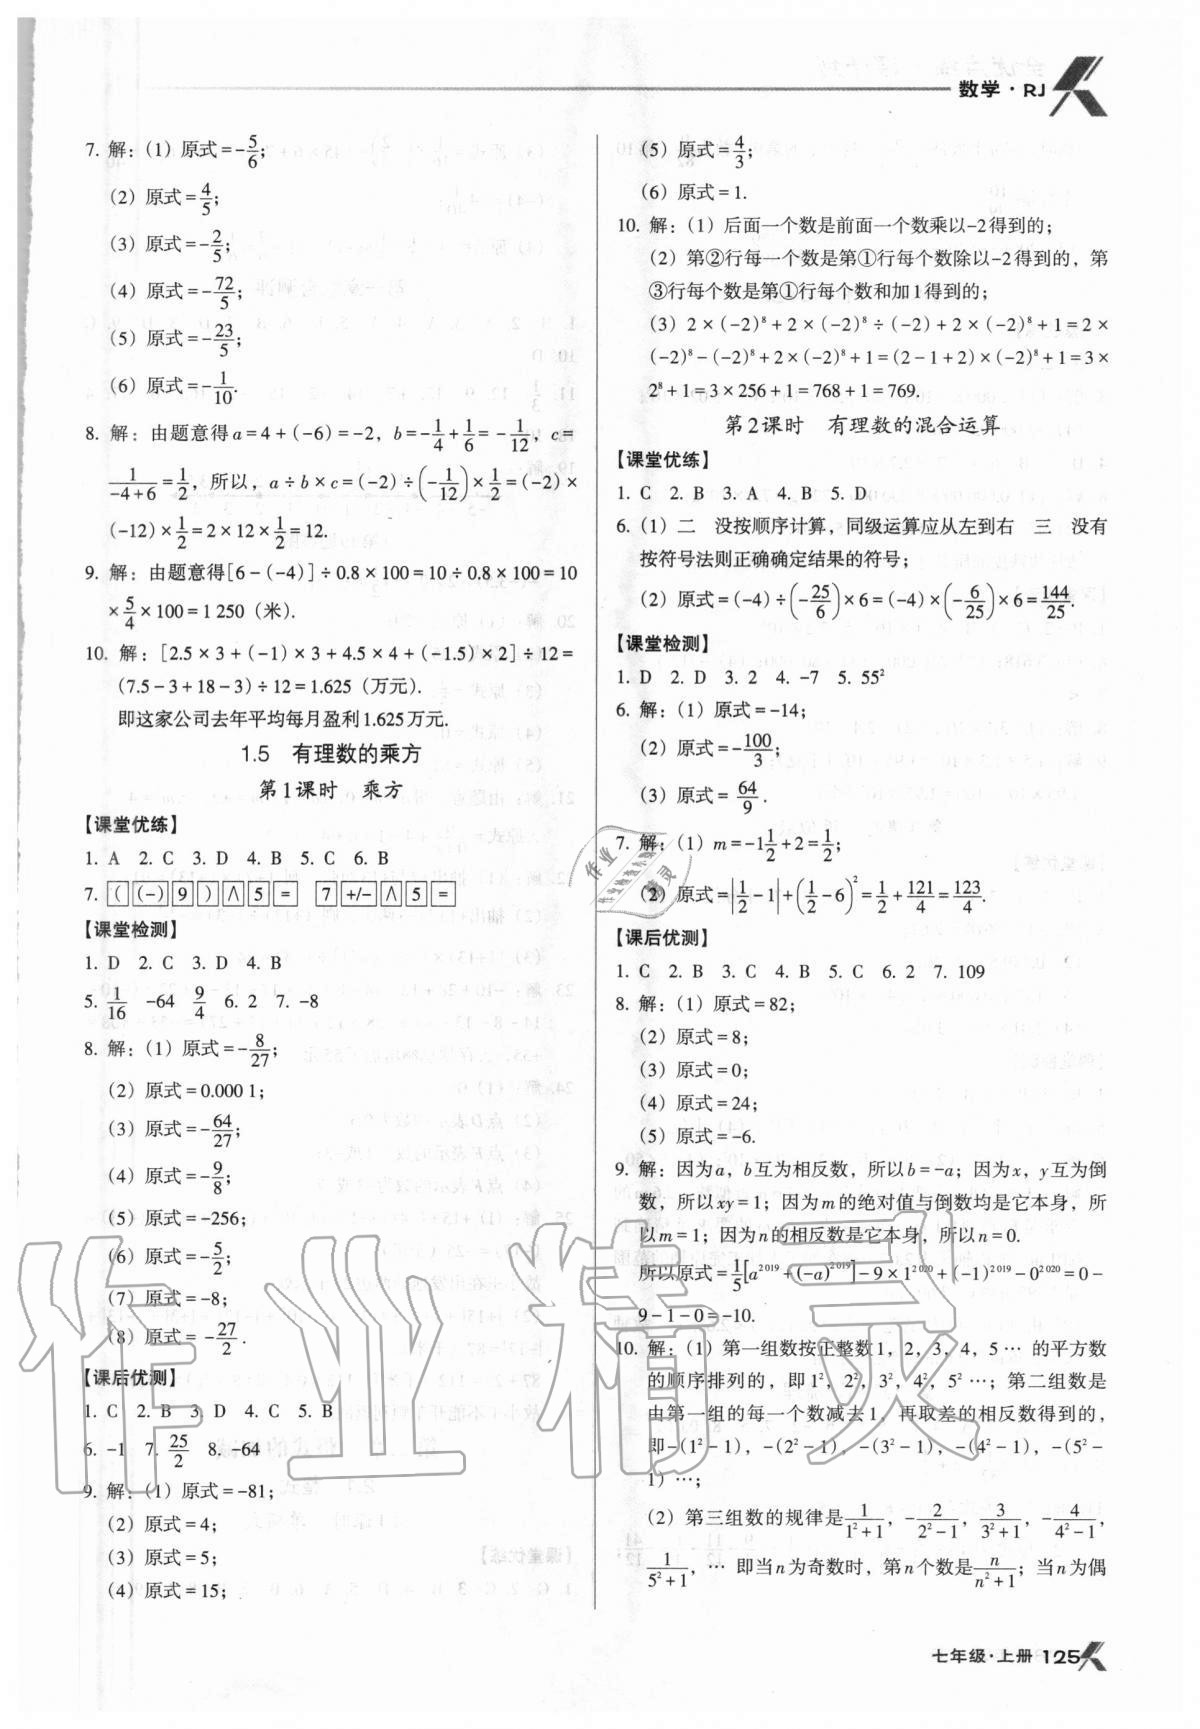 数学·RJ
7. 解：(1) 原式=-5/6；
(2) 原式=4/5；
(3) 原式=-2/5；
(4) 原式=-72/5；
(5) 原式=-23/5；
(6) 原式=-1/10.
8. 解：由题意得a=4+(-6)=-2，b=-1/4+1/6=-1/12，c=
1/(-4+6)=1/2，所以，a÷b×c=(-2)÷(-1/12)×1/2=(-2)×
(-12)×1/2=2×12×1/2=12.
9. 解：由题意得[6-(-4)]÷0.8×100=10÷0.8×100=10
×5/4×100=1 250（米）.
10. 解：[2.5×3+(-1)×3+4.5×4+(-1.5)×2]÷12=
(7.5-3+18-3)÷12=1.625（万元）.
即这家公司去年平均每月盈利1.625万元.
1.5 有理数的乘方
第1课时 乘方
【课堂优练】
1. A 2. C 3. D 4. B 5. C 6. B
7. ( (-) 9 ) ∧ 5 = 7 +/- ∧ 5 =
【课堂检测】
1. D 2. C 3. D 4. B
5. 1/16 -64 9/4 6. 2 7. -8
8. 解：(1) 原式=-8/27；
(2) 原式=0.000 1；
(3) 原式=-64/27；
(4) 原式=-9/8；
(5) 原式=-256；
(6) 原式=-5/2；
(7) 原式=-8；
(8) 原式= -27/2.
【课后优测】
1. C 2. B 3. D 4. C 5. B
6. -1 7. 25/2 8. -64
9. 解：(1) 原式=-81；
(2) 原式=4；
(3) 原式=5；
(4) 原式=15；
(5) 原式=4/3；
(6) 原式=1.
10. 解：(1) 后面一个数是前面一个数乘以-2得到的；
(2) 第②行每一个数是第①行每个数除以-2得到的，第
③行每个数是第①行每个数和加1得到的；
(3) 2×(-2)⁸+2×(-2)⁸÷(-2)+2×(-2)⁸+1=2×
(-2)⁸-(-2)⁸+2×(-2)⁸+1=(2-1+2)×(-2)⁸+1=3×
2⁸+1=3×256+1=768+1=769.
第2课时 有理数的混合运算
【课堂优练】
1. C 2. B 3. A 4. B 5. D
6. (1) 二 没按顺序计算，同级运算应从左到右 三 没有
按符号法则正确确定结果的符号；
(2) 原式=(-4)÷(-25/6)×6=(-4)×(-6/25)×6=144/25.
【课堂检测】
1. D 2. D 3. 2 4. -7 5. 55²
6. 解：(1) 原式=-14；
(2) 原式=-100/3；
(3) 原式= 64/9.
7. 解：(1) m=-1 1/2+2=1/2；
(2) 原式=|1/2-1|+(1/2-6)²=1/2+121/4=123/4.
【课后优测】
1. C 2. B 3. C 4. B 5. C 6. 2 7. 109
8. 解：(1) 原式=82；
(2) 原式=8；
(3) 原式=0；
(4) 原式=24；
(5) 原式=-6.
9. 解：因为a，b互为相反数，所以b=-a；因为x，y互为倒
数，所以xy=1；因为m的绝对值与倒数均是它本身，所
以m=1；因为n的相反数是它本身，所以n=0.
所以原式=1/5[a²⁰¹⁹+(-a)²⁰¹⁹]-9×1²⁰²⁰+(-1)²⁰¹⁹-0²⁰²⁰=0-
9-1-0=-10.
10. 解：(1) 第一组数按正整数1，2，3，4，5… 的平方数
的顺序排列的，即1²，2²，3²，4²，5² …；第二组数是
由第一组的每一个数减去1，再取差的相反数得到的，
即-(1²-1)，-(2²-1)，-(3²-1)，-(4²-1)，-(5²-
1) …；
(2) 第三组数的规律是1/(1²+1)，-2/(2²-1)，3/(3²+1)，-4/(4²-1)，
1/(5²+1)，… 即当n为奇数时，第n个数是n/(n²+1)；当n为偶
七年级·上册 125
作业精灵